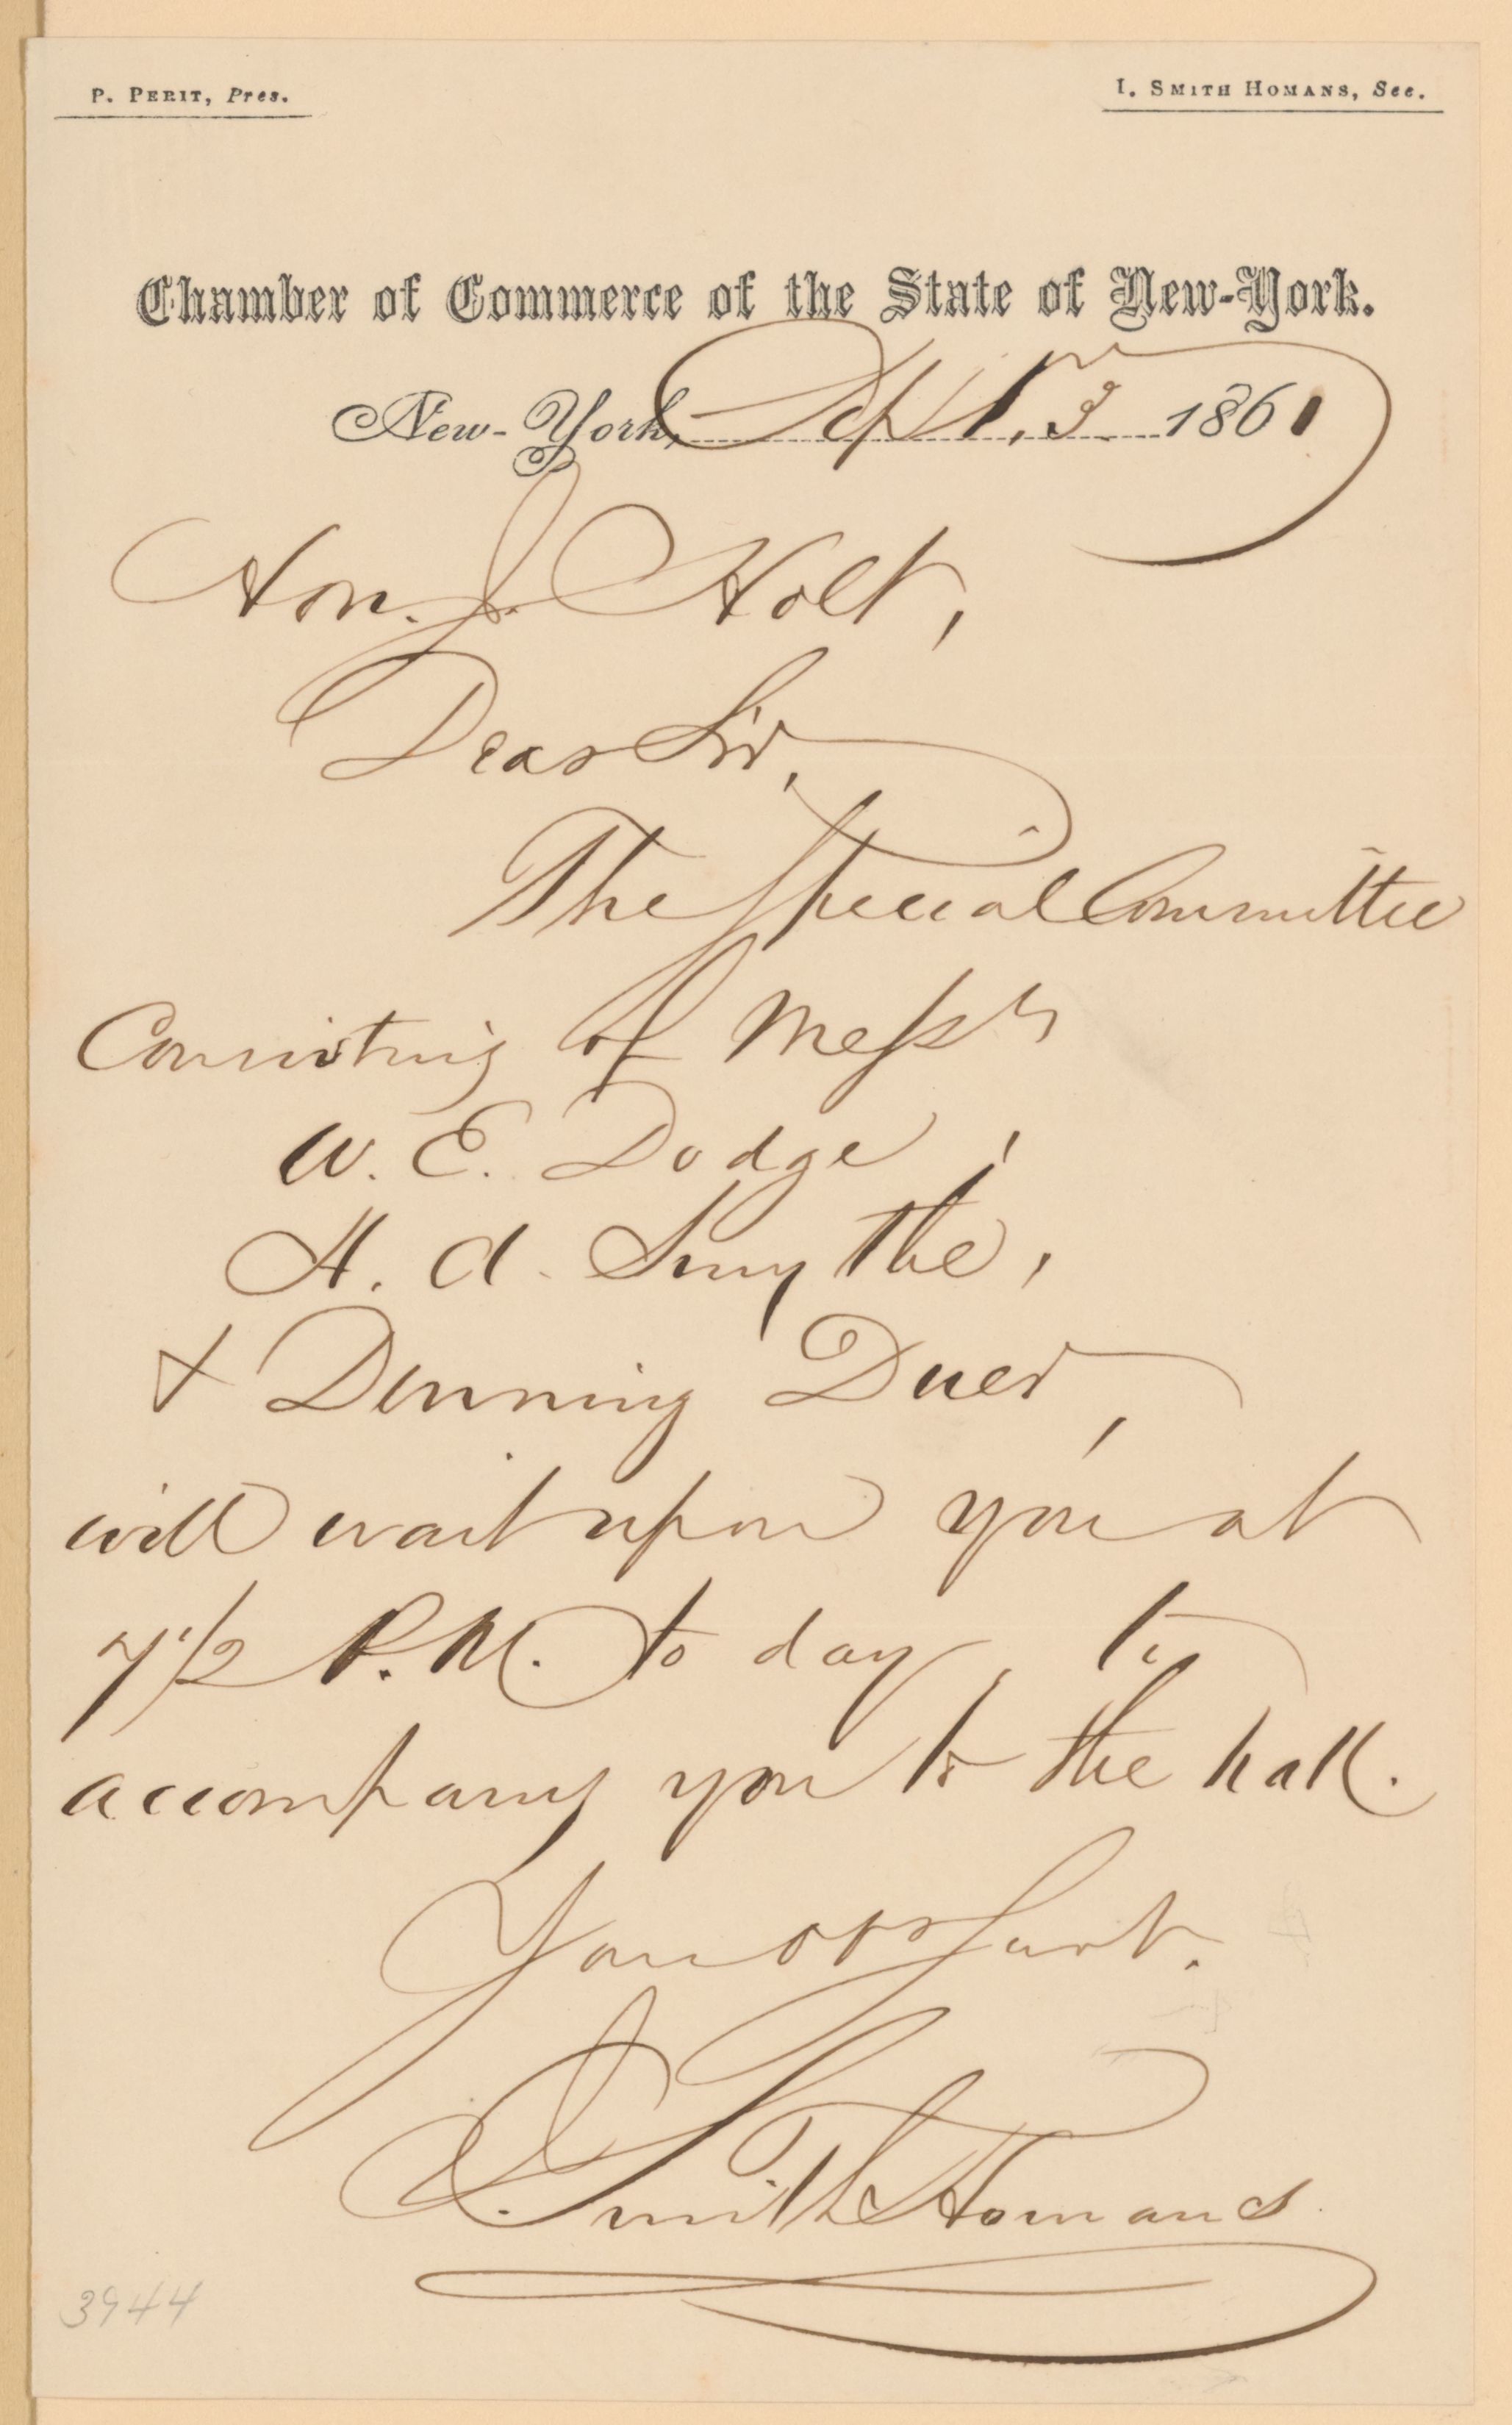 P. Perit, Pres.
I. Smith Homans, Sec.
Chamber of Commerce of the State of New-York.
New-York, Sept. 3 1861
Hon. J. Holt,
Dear Sir,
The Special Committee
Consisting of Messrs
W. E. Dodge,
H. A. Smythe,
& Denning Duer,
will wait upon you at
7 1/2 P.M. to day, to
accompany you to the hall.
Your obt Servt.
I. Smith Homans
3944